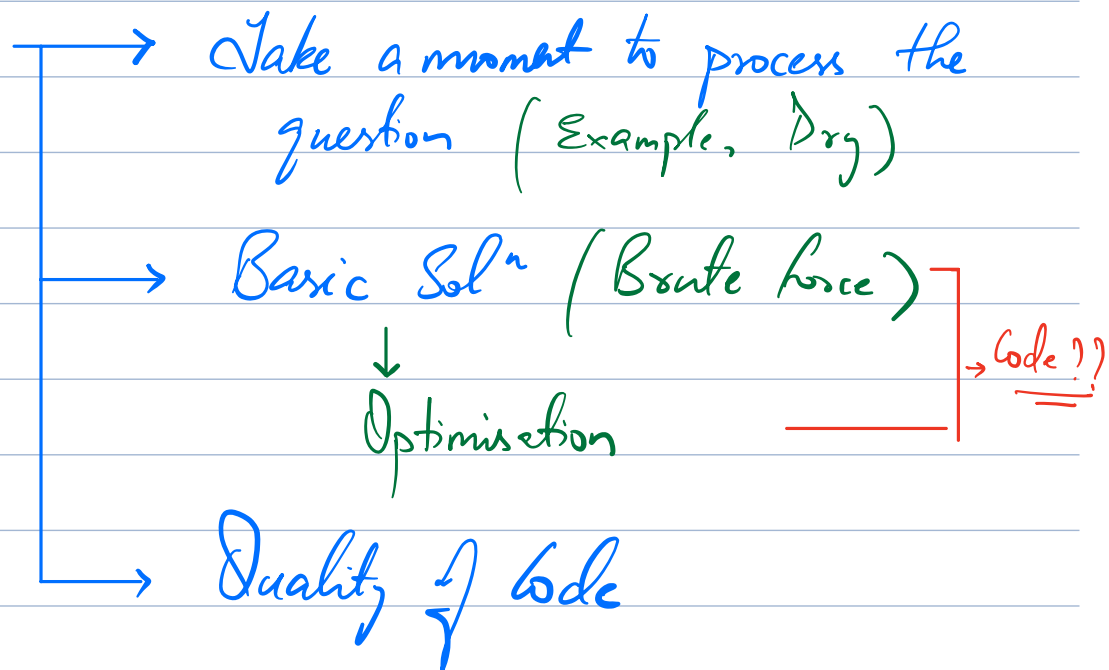 Take a moment to process the
question (Example, Dry)
Basic Solⁿ (Brute force)
Code ??
Optimisation
Quality of Code